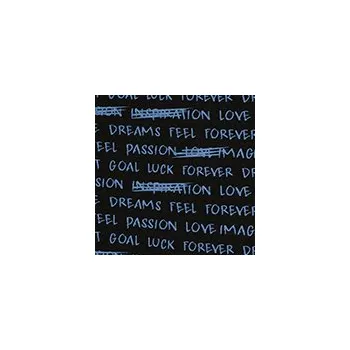 T GOAL LUCK FOREVER DR
SION INSPIRATION LOVE
E DREAMS FEEL FOREVER
EEL PASSION LOVE IMAG
T GOAL LUCK FOREVER DR
SION INSPIRATION LOVE
E DREAMS FEEL FOREVER
EEL PASSION LOVE IMAG
T GOAL LUCK FOREVER DR